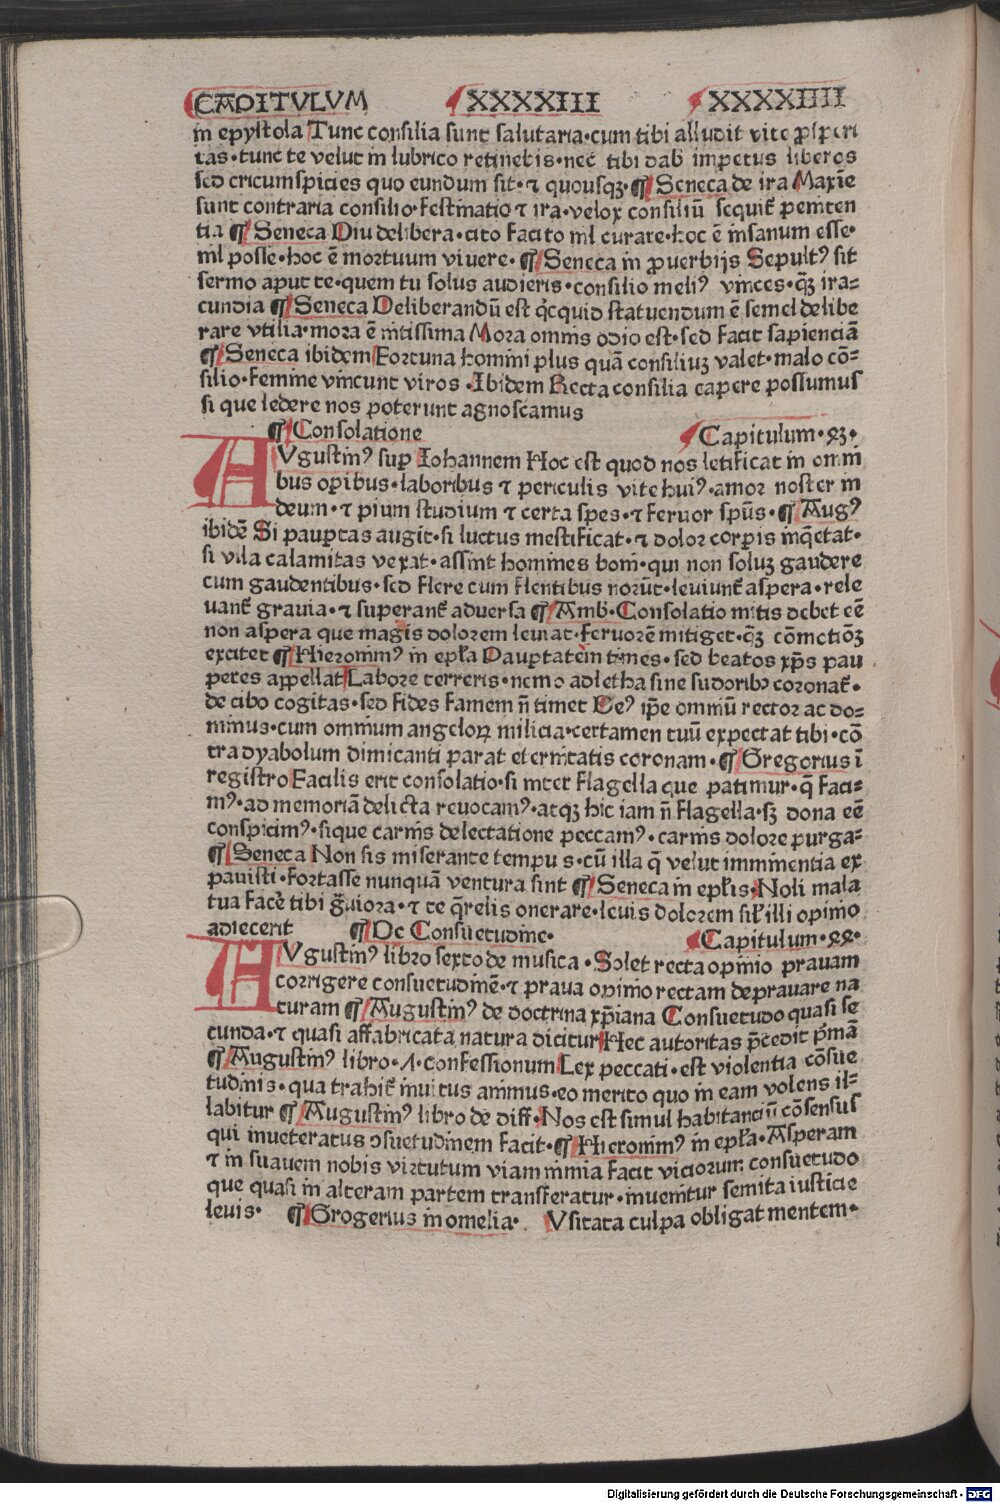 CAPITULUM XXXXIII XXXXIIII
in epystola Tunc consilia sunt salutaria·cum tibi alludit vite ꝓsperi
tas·tunc te velut in lubrico retinebis·nec tibi dab impetus liberos
sed circumspicies quo eundum sit·⁊ quousqꝫ·¶ Seneca de ira Maxīe
sunt contraria consilio·festinatio ⁊ ira·velox consiliū sequit᷑ peniten
tia ¶ Seneca Diu delibera·cito facito nil curare·hoc ē insanum esse·
nil posse·hoc ē mortuum vivere·¶ Seneca in ꝓverbijs Sepultꝰ sit
sermo aput te·quem tu solus audieris·consilio meliꝰ vinces·qꝫ ira=
cundia ¶ Seneca Deliberandū est qͥcquid statuendum ē semel delibe
rare vtilia·mora ē tutissima Mora omnis odio est·sed facit sapienciā
¶ Seneca ibidem Fortuna homini plus quā consiliuꝫ valet·malo cō=
silio·femine vincunt viros·Ibidem Recta consilia capere possumus
si que ledere nos poterunt agnoscamus
¶ Consolatione Capitulum·
AVgustinꝰ suꝑ Iohannem Hoc est quod nos letificat in omni
bus oꝑibus·laboribus ⁊ periculis vite huiꝰ·amor noster in
deum·⁊ pium studium ⁊ certa spes·⁊ fervor spūs·¶ Augꝰ
ibidē Si pauꝑtas augit·si luctus mestificat·⁊ dolor corꝑis inqͥetat·
si vlla calamitas vexat·assint homines boni·qui non soluꝫ gaudere
cum gaudentibus·sed flere cum flentibus norūt·leviunt᷑ aspera·rele
vant᷑ gravia·⁊ superant᷑ adversa ¶ Amb·Consolatio mitis debet eē
non aspera que magis dolorem leniat·fervorē mitiget·qꝫ cōmotiōꝫ
excitet ¶ Hieronimꝰ in epła Pauꝑtatem times·sed beatos xp̄s pau
peres appellat Labore terreris·nemo adletha sine sudoribꝫ coronat᷑·
de cibo cogitas·sed fides famem n̄ timet Deꝰ ip̄e omniū rector ac do=
minus·cum omnium angeloꝝ milicia·certamen tuū expectat tibi·cō
tra dyabolum dimicanti parat eternitatis coronam·¶ Gregorius ī
registro Facilis erit consolatio·si inter flagella que patimur·q̄ faci=
mꝰ·ad memoriā delicta revocamꝰ·atqꝫ hic iam n̄ flagella·sꝫ dona eē
conspicimꝰ·sique carnis delectatione peccamꝰ·carnis dolore purga=
¶ Seneca Non sis miser ante tempus·cū illa q̄ velut imminentia ex
pavisti·fortasse nunquā ventura sint ¶ Seneca in epłis·Noli mala
tua facē tibi gͣviora·⁊ te q̄relis onerare·levis dolorem sił illi opinio
adiecerit ¶ De Consuetudine· Capitulum·
AVgustinꝰ libro sexto de musica·Solet recta opinio pravam
corrigere consuetudinē·⁊ prava opinio rectam depravare na
turam ¶ Augustinꝰ de doctrina xp̄iana Consuetudo quasi se
cunda·⁊ quasi affabricata natura dicitur Hec autoritas p̄cedit pͥmā
¶ Augustinꝰ libro· confessionum Lex peccati·est violentia cōsue
tudinis·qua trahit᷑ invitus animus·eo merito quo in eam volens il=
labitur ¶ Augustinꝰ libro de diff·Nos est simul habitanciū cōsensus
qui inveteratus ɔsuetudinem facit·¶ Hieronimꝰ in epła·Asperam
⁊ in suavem nobis virtutum viam nimia facit viciorum consuetudo
que quasi in alteram partem transferatur·invenitur semita iusticie
levis· ¶ Grogerius in omelia· Vsitata culpa obligat mentem·
Digitalisierung gefördert durch die Deutsche Forschungsgemeinschaft - DFG